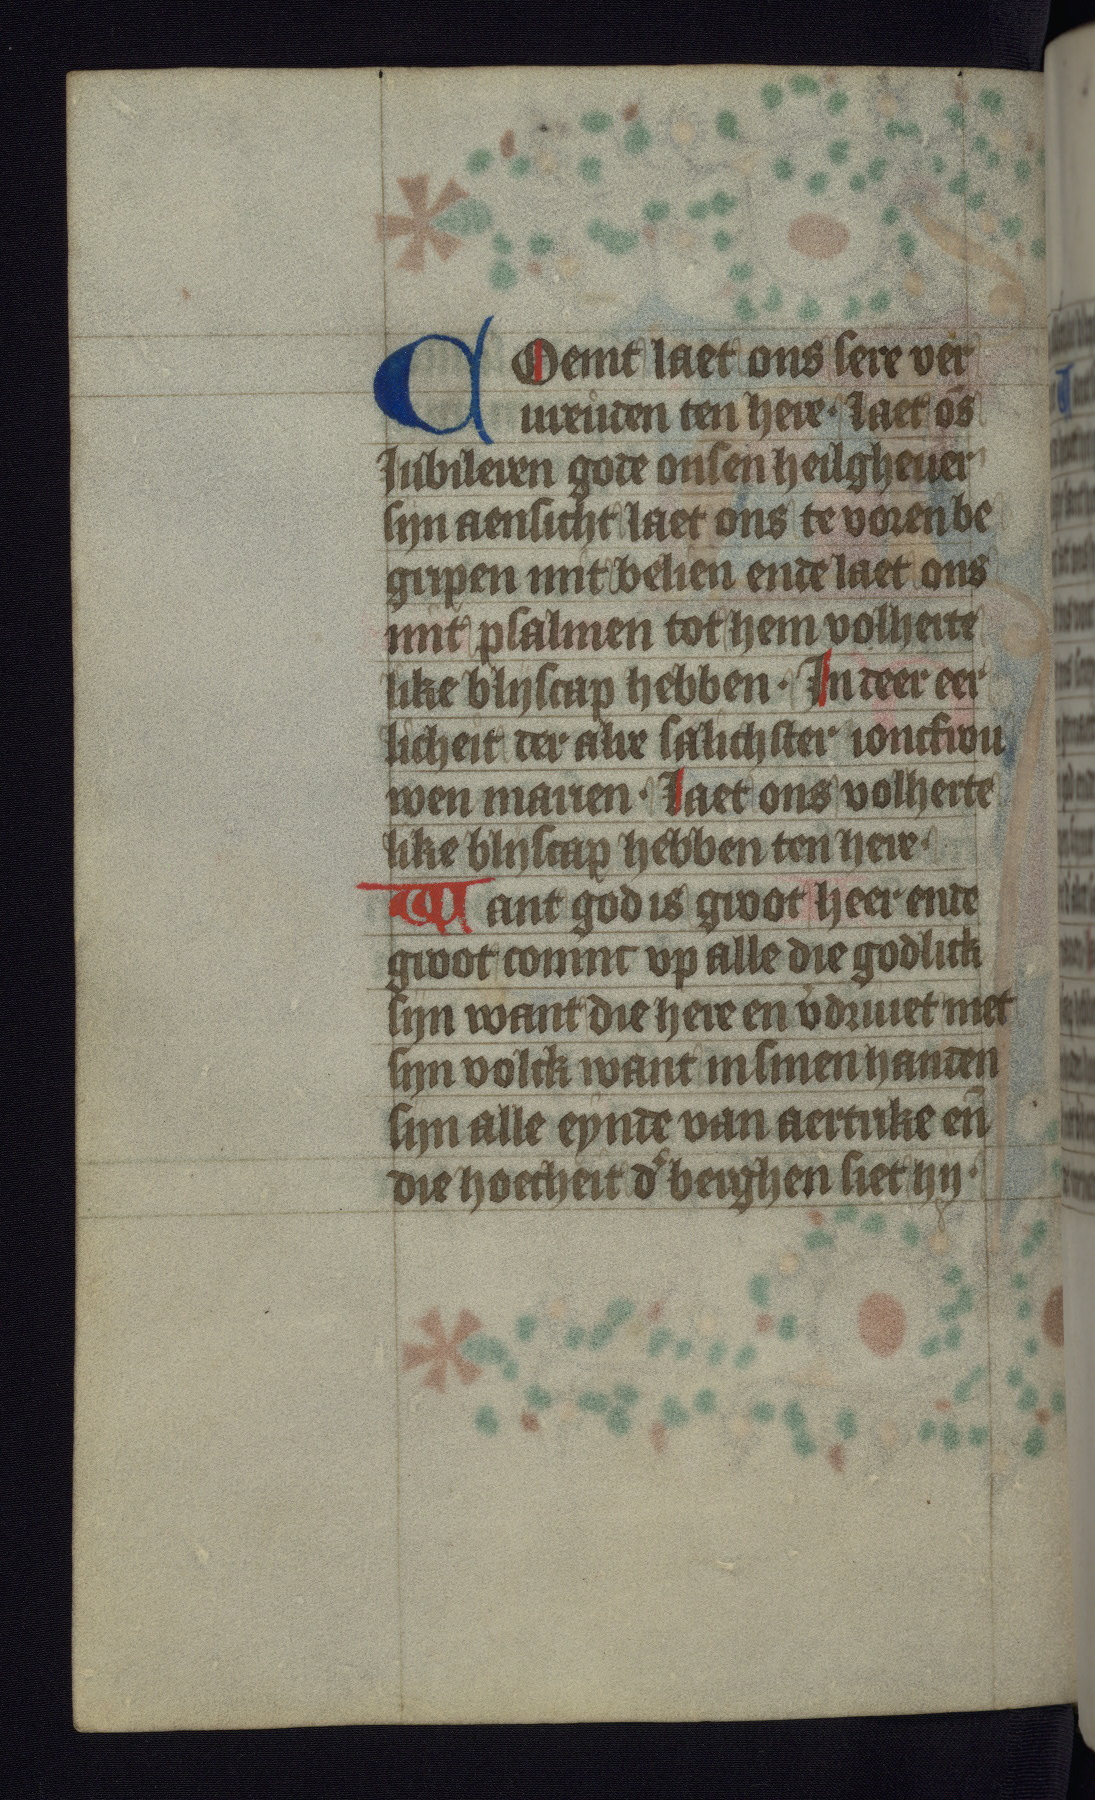 COemt laet ons sere ver
ureuden ten here· laet ōs
Jubileren gode onsen heilghever
sijn aensicht laet ons te voren be
gripen mit belien ende laet ons
mit psalmen tot hem volherte
like blijscap hebben· In deer eer
licheit der alre salichster ionckfrou
wen marien· Laet ons volherte
like blijscap hebben ten here·
Want god is groot heer ende
groot coninc up alle die godlick
sijn want die here en v̄driuet niet
sijn volck want in sinen handen
sijn alle eynde van aertrike en̄
die hoecheit d᷒ berghen siet hij·